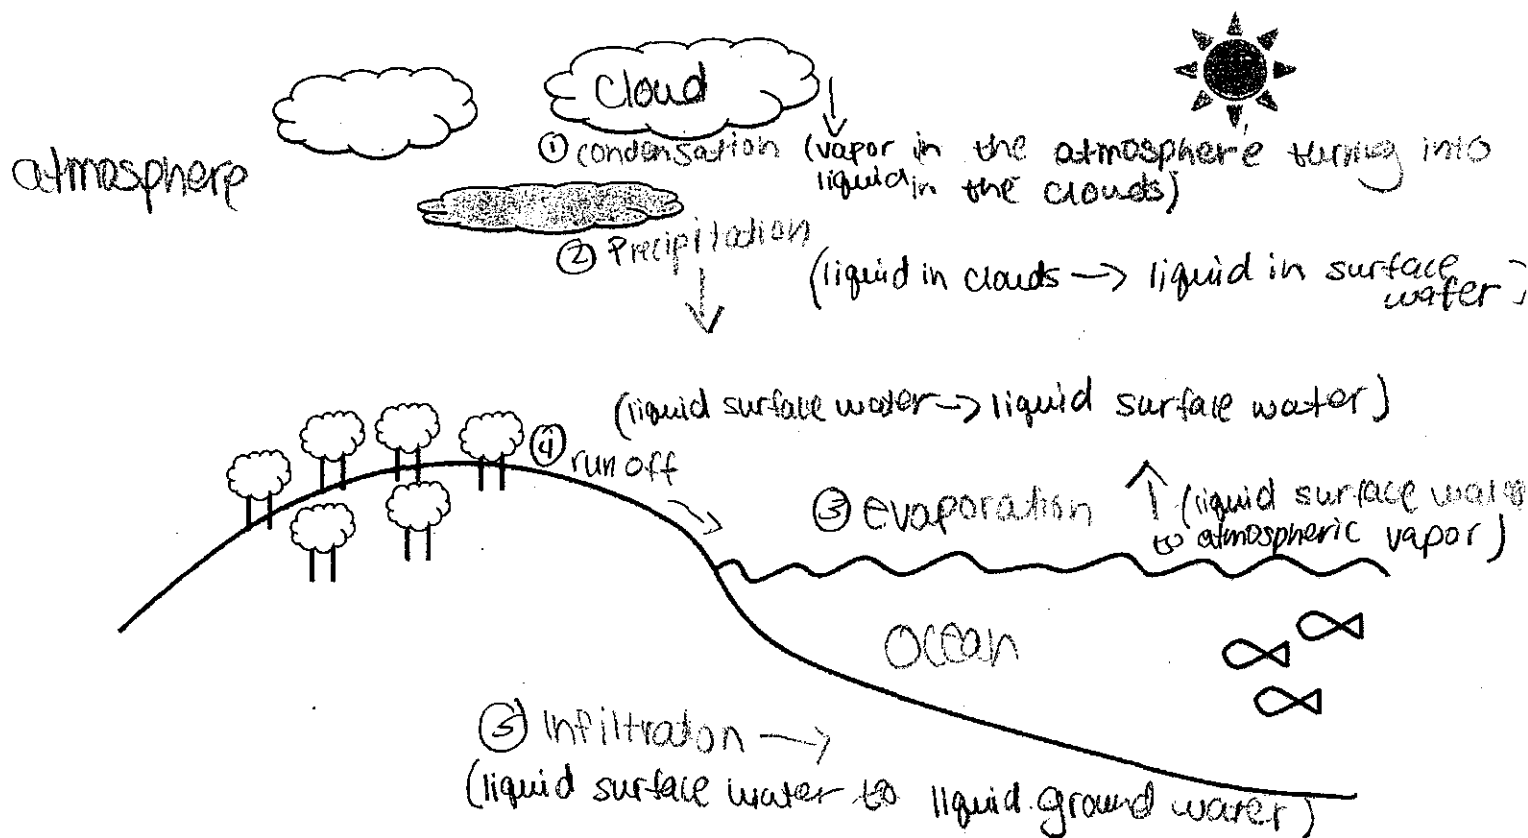 cloud
① condensation (vapor in the atmosphere turning into
liquid in the clouds)
atmosphere
② Precipitation
(liquid in clouds → liquid in surface
water)
(liquid surface water → liquid surface water)
④ run off
③ evaporation ↑ (liquid surface water
to atmospheric vapor)
Ocean
⑤ Infiltraton →
(liquid surface water to liquid ground water)